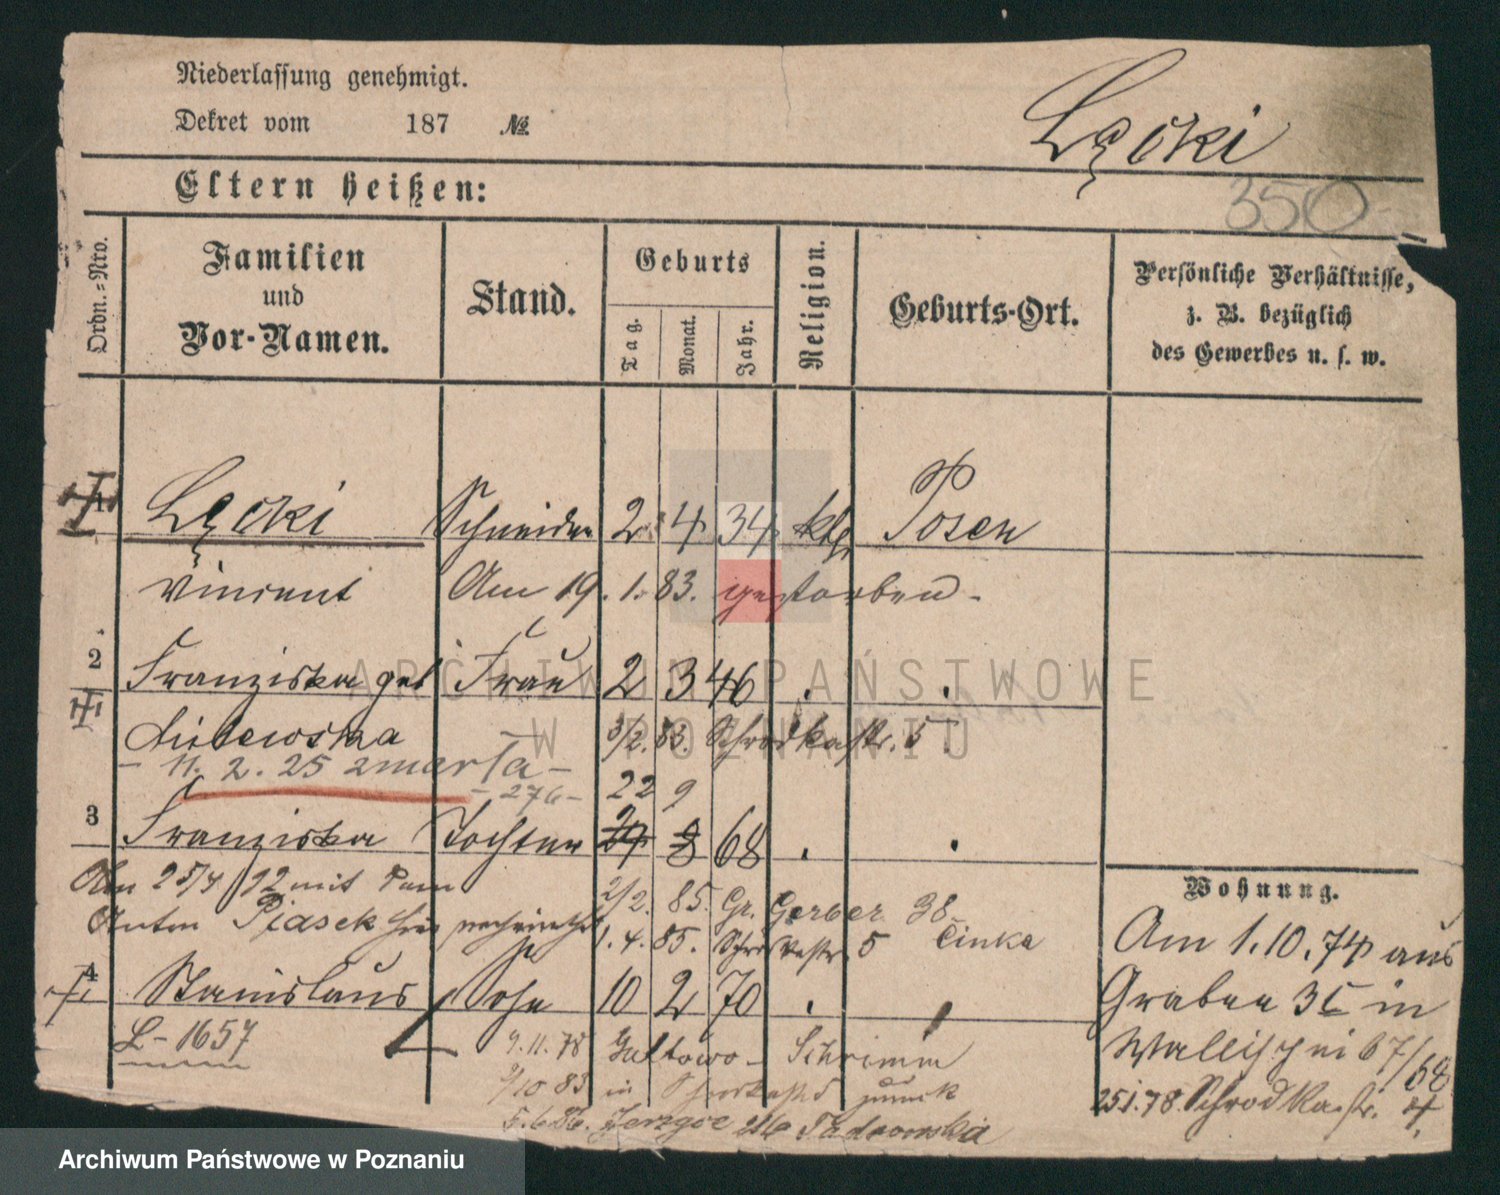 Niederlassung genehmigt.
Dekret vom 187 №
Łęcki
350
Eltern heißen:
Ordn.=Nro.
Familien
und
Vor-Namen.
Stand.
Geburts
Tag.
Monat.
Jahr.
Religion.
Geburts-Ort.
Persönliche Verhältnisse,
z. B. bezüglich
des Gewerbes u. s. w.
1 Łęcki Schneider 2 4 34 kth Posen
Vincent Am 19. 1. 83. gestorben.
2 Franziska geb Frau 2 3 46
3/2. 83. Schrodkastr. 5.
11. 2. 25 zmarła
- 276 -
22 9
3 Franziska Tochter 68
Am 25/4 92 mit dem
Anton Piasek hier verheirathet
2/2. 85. Gr. Gerber 38
1. 4. 85. 5
4 Stanislaus Sohn 10 2 70
L- 1657
9. 11. 78 Schrimm
10 83 in zurück
5. 6. 86.
ARCHIWUM PAŃSTWOWE
W POZNANIU
Wohnung.
Am 1. 10. 74 aus
Graben 3c in
Wallischei 67/68
25.1.78. Schrodkastr. 4.
Archiwum Państwowe w Poznaniu